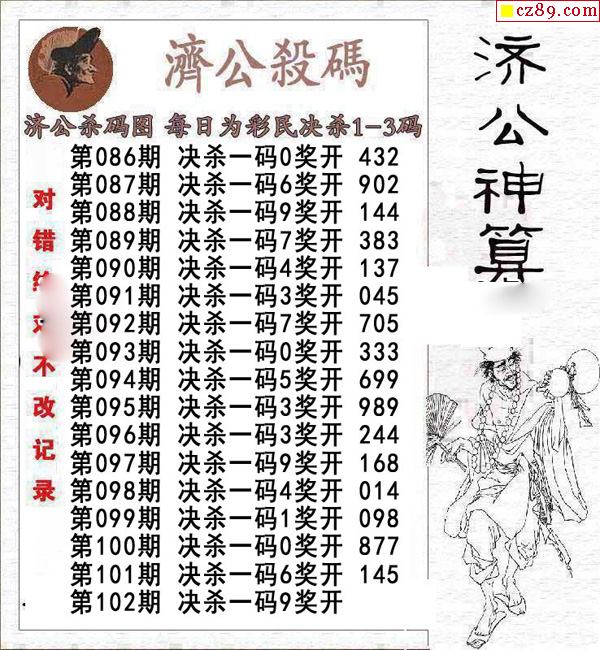 cz89.com
濟公殺碼
济公杀码图 每日为彩民决杀1-3码
第086期 决杀一码0奖开 432
第087期 决杀一码6奖开 902
第088期 决杀一码9奖开 144
第089期 决杀一码7奖开 383
第090期 决杀一码4奖开 137
第091期 决杀一码3奖开 045
第092期 决杀一码7奖开 705
第093期 决杀一码0奖开 333
第094期 决杀一码5奖开 699
第095期 决杀一码3奖开 989
第096期 决杀一码3奖开 244
第097期 决杀一码9奖开 168
第098期 决杀一码4奖开 014
第099期 决杀一码1奖开 098
第100期 决杀一码0奖开 877
第101期 决杀一码6奖开 145
第102期 决杀一码9奖开
对错不改记录
济公神算